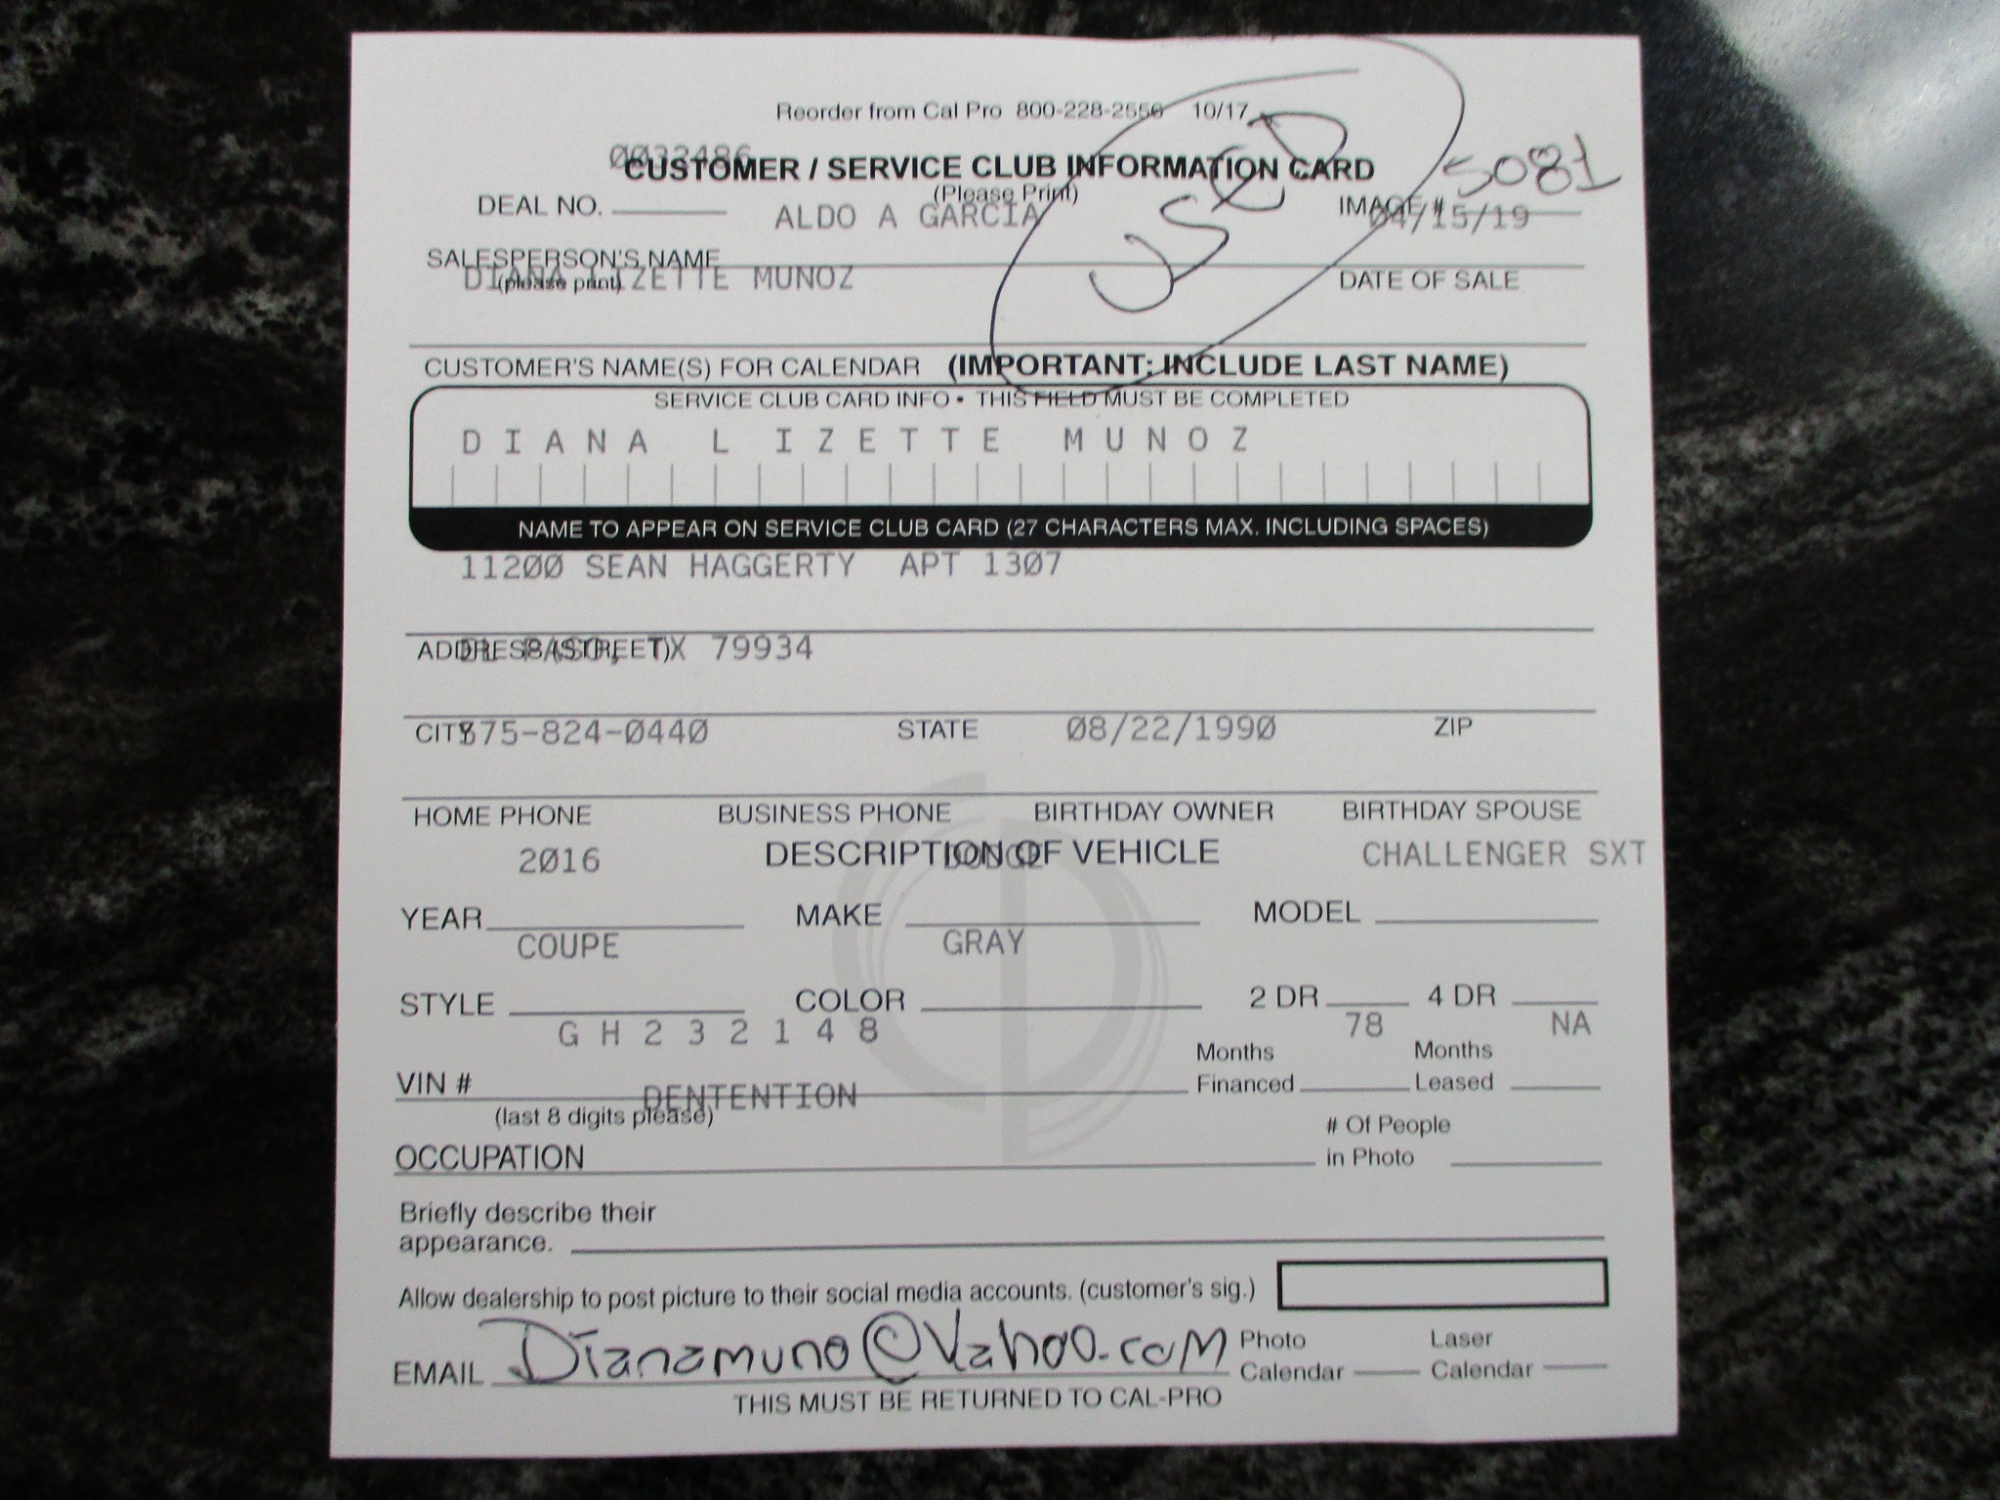 Reorder from Cal Pro 800-228-2556 10/17
0033486
CUSTOMER / SERVICE CLUB INFORMATION CARD
(Please Print)
5081
DEAL NO. IMAGE #
ALDO A GARCIA 04/15/19
SALESPERSON'S NAME
(please print) DATE OF SALE
DIANA LIZETTE MUNOZ
CUSTOMER'S NAME(S) FOR CALENDAR (IMPORTANT: INCLUDE LAST NAME)
SERVICE CLUB CARD INFO • THIS FIELD MUST BE COMPLETED
DIANA L IZETTE MUNOZ
NAME TO APPEAR ON SERVICE CLUB CARD (27 CHARACTERS MAX. INCLUDING SPACES)
11200 SEAN HAGGERTY APT 1307
ADDRESS (STREET)
EL PASO, TX 79934
CITY STATE ZIP
575-824-0440 08/22/1990
HOME PHONE BUSINESS PHONE BIRTHDAY OWNER BIRTHDAY SPOUSE
DESCRIPTION OF VEHICLE
2016 DODGE CHALLENGER SXT
YEAR MAKE MODEL
COUPE GRAY
STYLE COLOR 2 DR 4 DR
GH232148 78 NA
VIN # Months Financed Months Leased
(last 8 digits please)
DENTENTION
OCCUPATION # Of People in Photo
Briefly describe their
appearance.
Allow dealership to post picture to their social media accounts. (customer's sig.)
EMAIL Dianamuno@Yahoo.com Photo Calendar Laser Calendar
THIS MUST BE RETURNED TO CAL-PRO